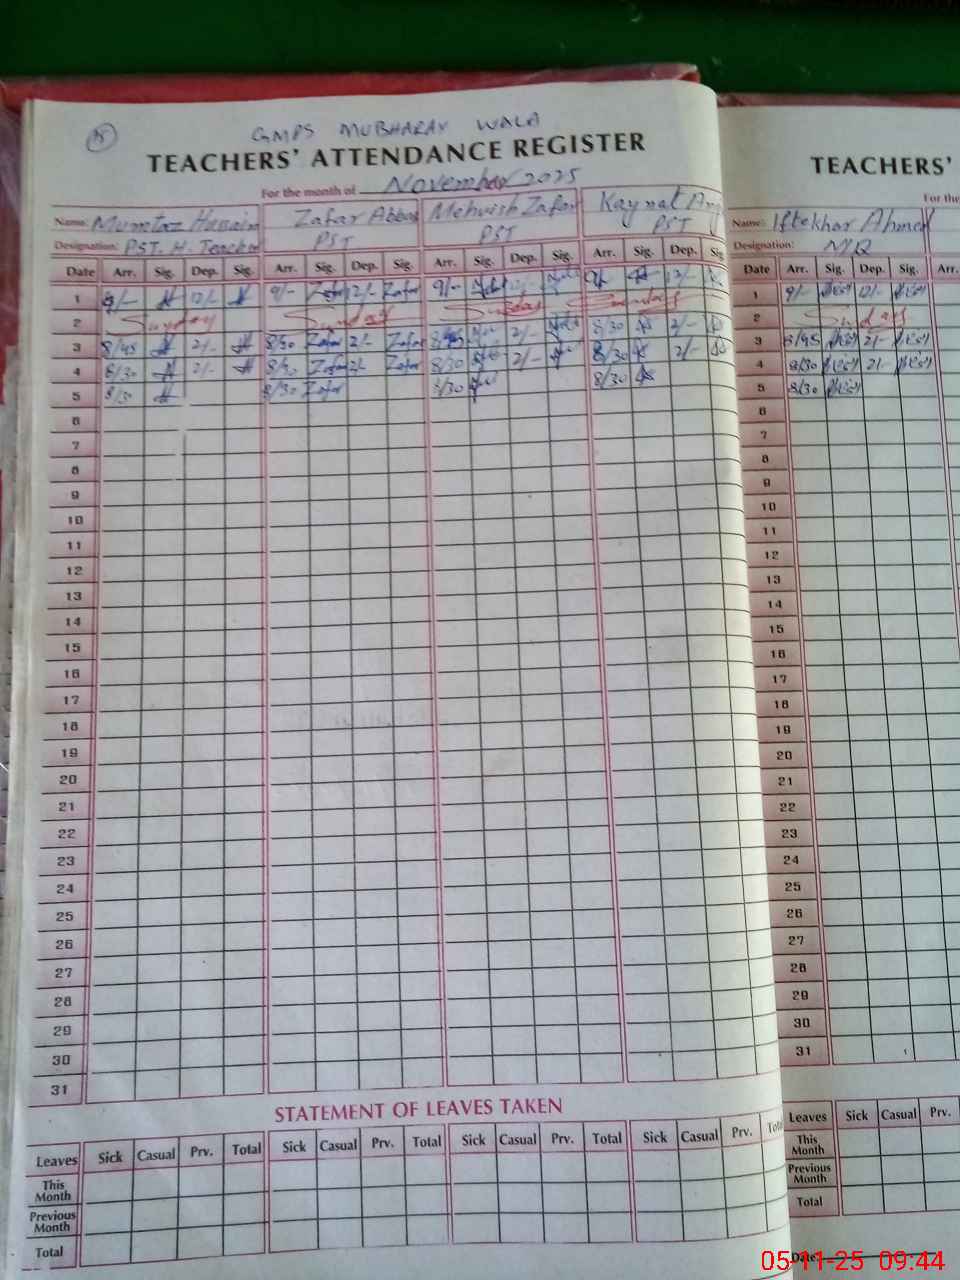 GMPS MUBHARAK WALA
TEACHERS' ATTENDANCE REGISTER
For the month of November 2025
Name: Mumtaz Hussain Zafar Abbas Mehwish Zafar Kaynat
Designation: PST. H. Teacher PST PST PST
Date Arr. Sig. Dep. Sig. Arr. Sig. Dep. Sig. Arr. Sig. Dep. Sig. Arr. Sig. Dep. Sig.
1 9/- 12/- 9/- Zafar 12/- Zafar 9/- 12/- 9/- 12/-
2 Sunday Sunday Sunday Sunday
3 8/45 2/- 8/30 Zafar 2/- Zafar 2/- 8/30 2/-
4 8/30 2/- 8/30 Zafar 2/- Zafar 8/30 2/- 8/30 2/-
5 8/30 8/30 Zafar 8/30 8/30
6
7
8
9
10
11
12
13
14
15
16
17
18
19
20
21
22
23
24
25
26
27
28
29
30
31
STATEMENT OF LEAVES TAKEN
Leaves Sick Casual Prv. Total Sick Casual Prv. Total Sick Casual Prv. Total Sick Casual Prv.
This Month
Previous Month
Total
TEACHERS'
For the
Name: Iftekhar Ahmed
Designation: N/Q
Date Arr. Sig. Dep. Sig. Arr.
1 9/- 12/-
2 Sunday
3 8/45 2/-
4 8/30 2/-
5 8/30
6
7
8
9
10
11
12
13
14
15
16
17
18
19
20
21
22
23
24
25
26
27
28
29
30
31
Leaves Sick Casual Prv.
This Month
Previous Month
Total
Date
05-11-25 09:44